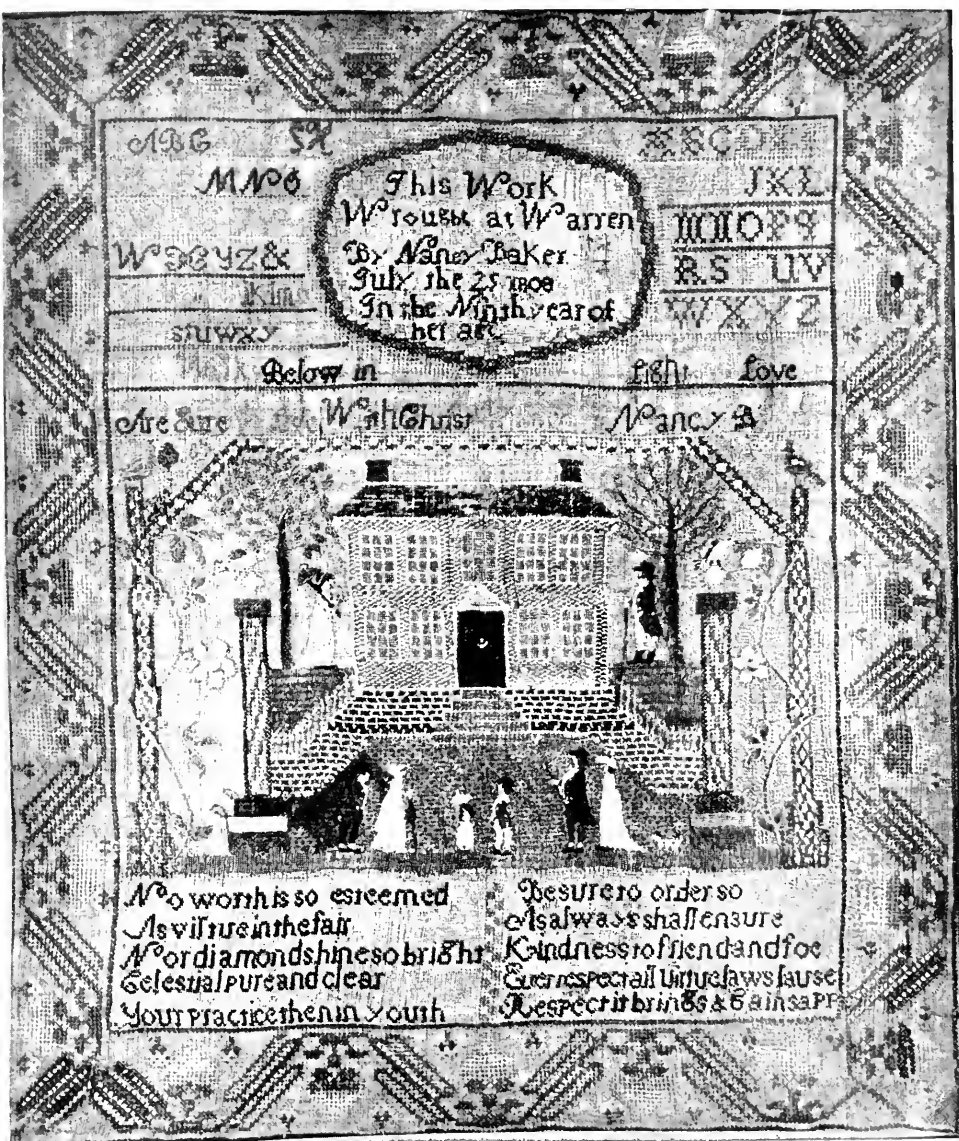 ABC
MNO
W XYZ&
klmn
stuwxy
This Work
Wrought at Warren
By Nancy Baker
July the 25 1808
In the Ninth year of
her age
ABCD
JKL
MNOPQ
RS UV
WXYZ
Below in light Love
Are Sure With Christ Nancy B
No worth is so esteemed
As virtue in the fair
Nor diamond shine so bright
Celestial pure and clear
Your practice then in youth
Be sure to order so
As always shall ensure
Kindness to friend and foe
Ever respect all Virtue laws
Respect it brings & Gains a